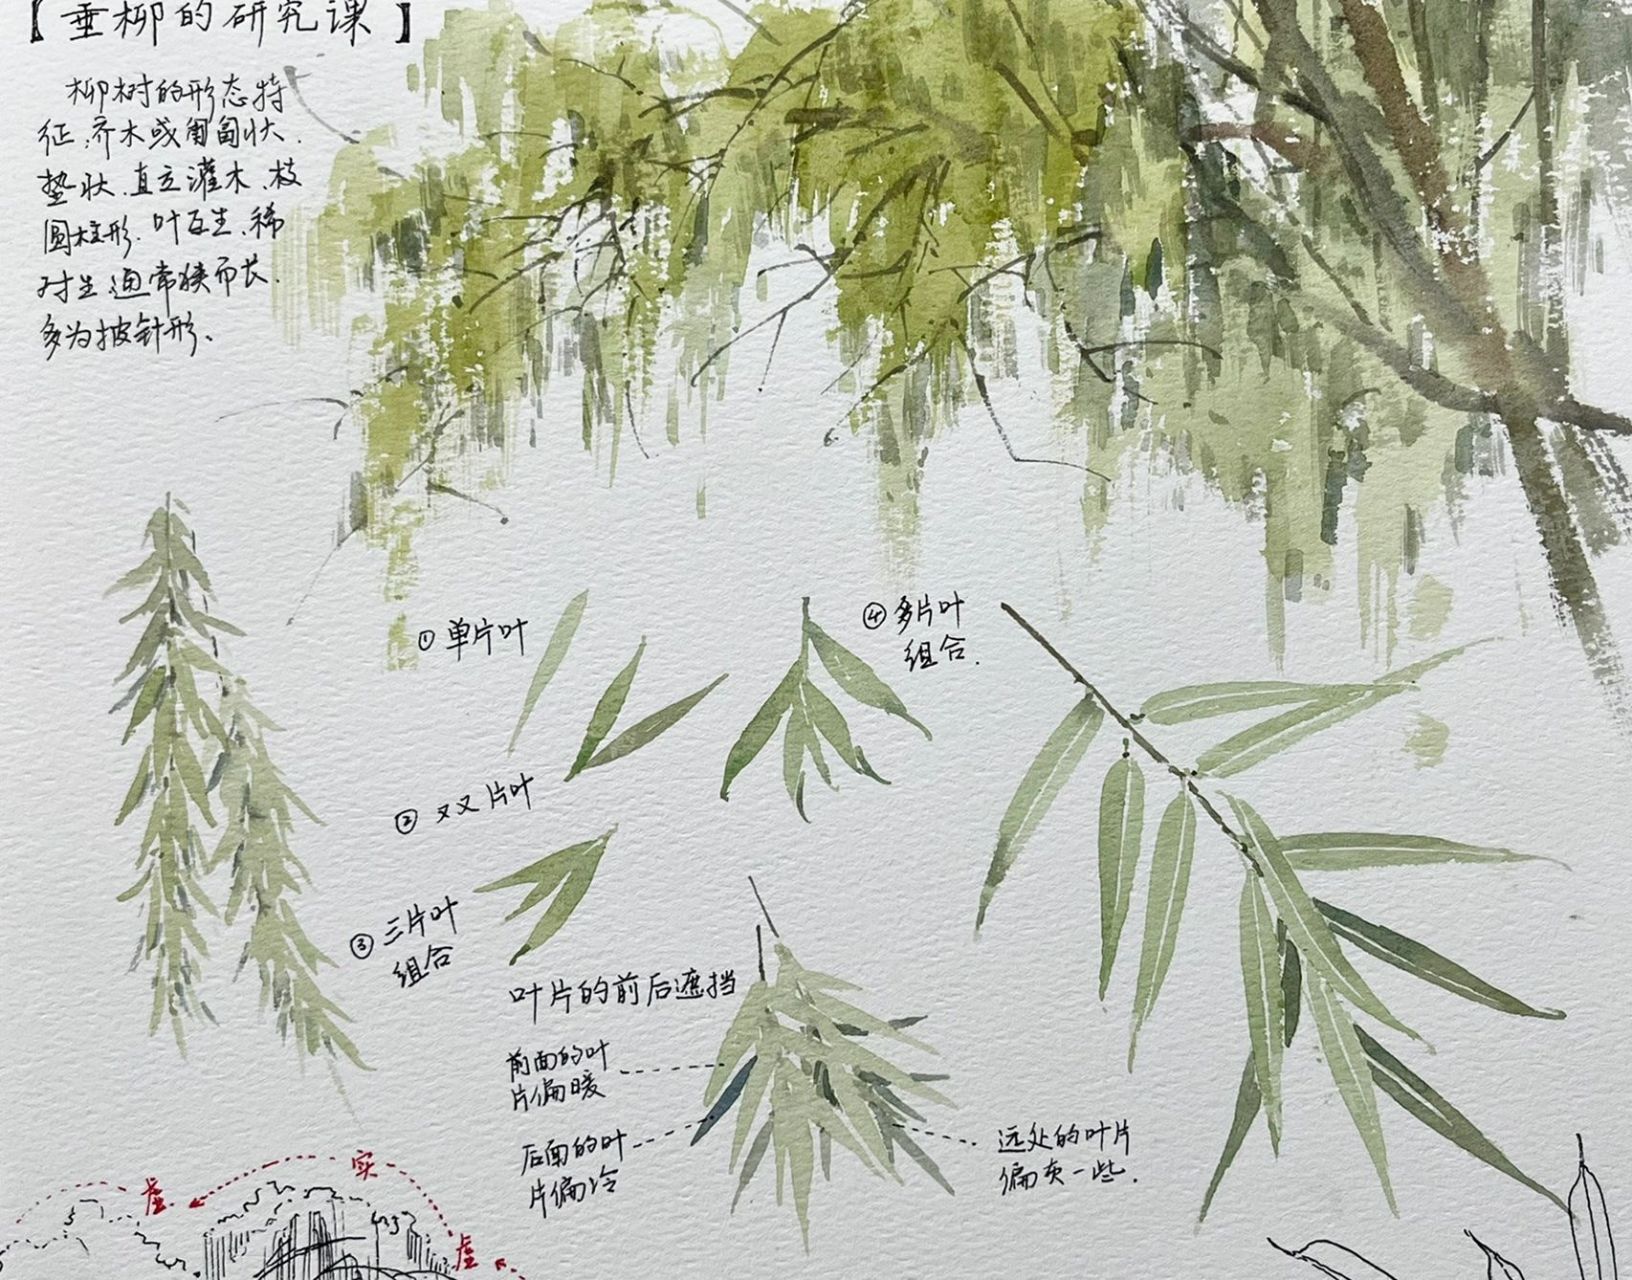 【垂柳的研究课】
柳树的形态特
征.乔木或匍匐状、
垫状.直立灌木.枝
圆柱形.叶互生.稀
对生.通常狭而长.
多为披针形、
①单片叶
②双片叶
③三片叶
组合
④多片叶
组合.
叶片的前后遮挡
前面的叶
片偏暖
后面的叶
片偏冷
远处的叶片
偏灰一些.
虚
实
虚